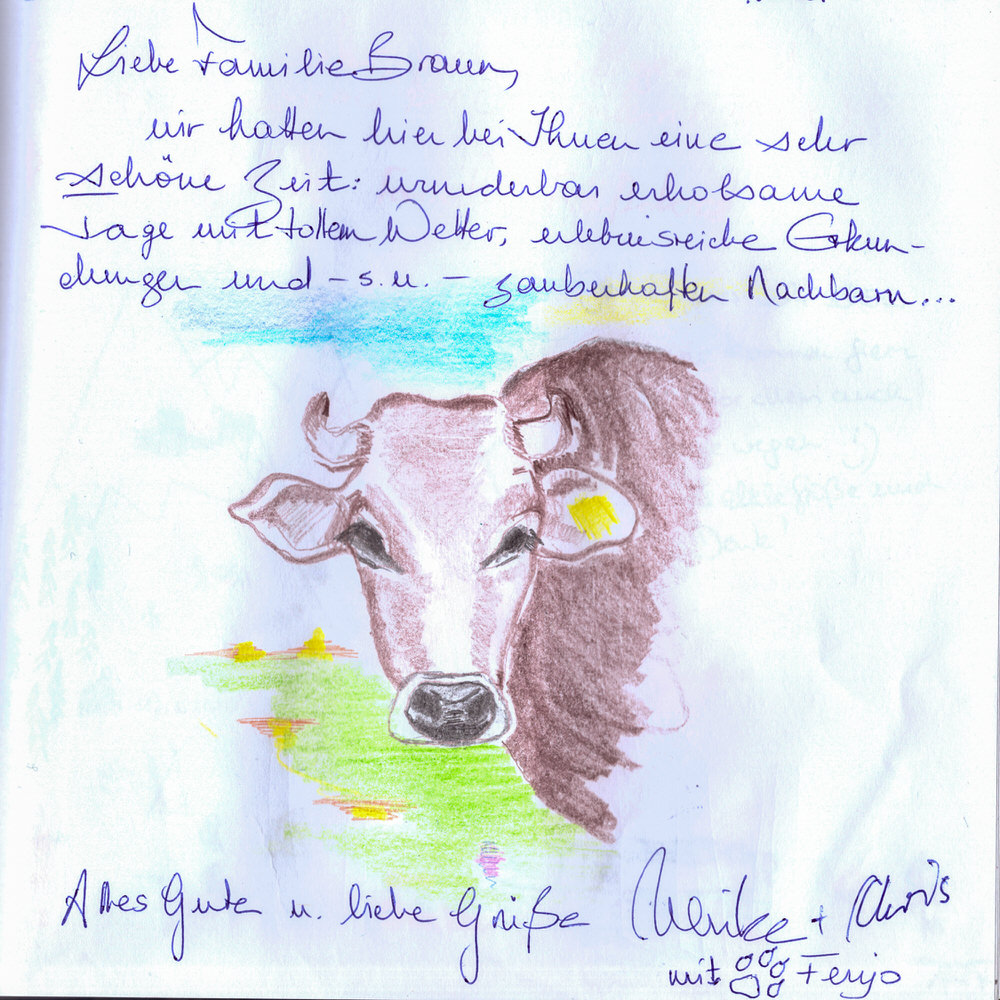 Liebe Familie Braun,
wir hatten hier bei Ihnen eine sehr
schöne Zeit: wunderbar erholsame
Tage mit tollem Wetter, erlebnisreiche Erkun-
dungen und - s.u. - zauberhaften Nachbarn...
Alles Gute u. liebe Grüße Ulrike + Chris
mit Fenjo